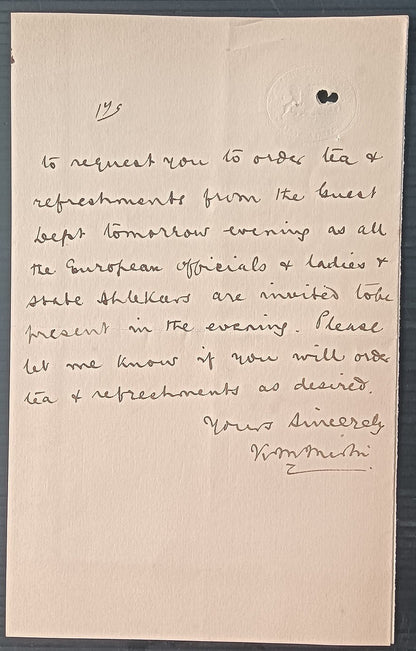 to request you to order tea &
refreshments from the Guest
Dept tomorrow evening as all
the European Officials & ladies &
State Ahlekars are invited to be
present in the evening. Please
let me know if you will order
tea & refreshments as desired.
Yours Sincerely